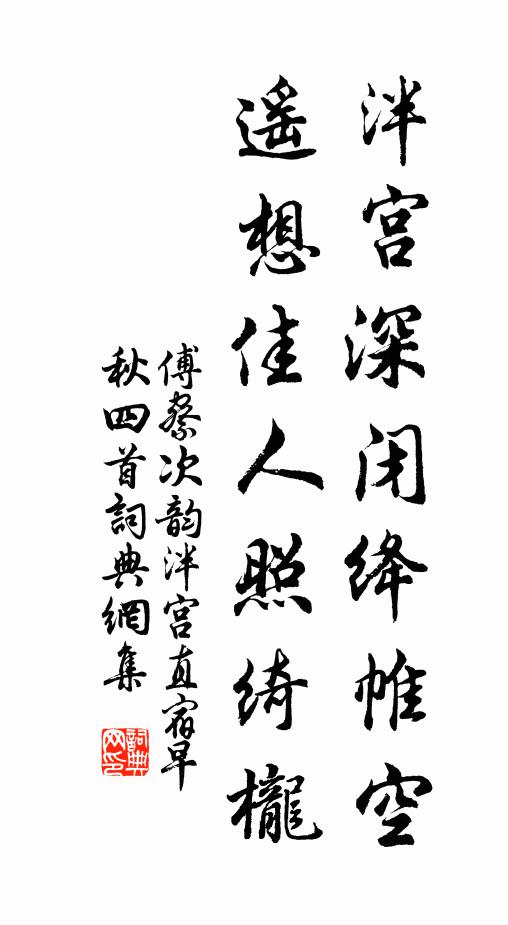 泮宫深闭绛帷空
遥想佳人照绮櫳
傅察次韵泮宫直宿早
秋四首詞典網集
詞典
网